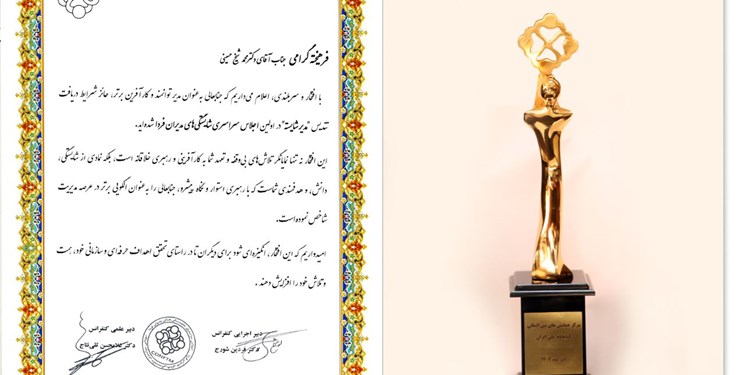 فرهیخته گرامی جناب آقای دکتر محمد شیخ حسینی
با افتخار و سربلندی، اعلام می‌داریم که جنابعالی به‌عنوان مدیر توانمند و کارآفرین برتر، حائز شرایط دریافت
تندیس "مدیر شایسته" در اولین اجلاس سراسری شایستگی‌های مدیران فردا شده‌اید.
این افتخار نه تنها نمایانگر تلاش‌های بی‌وقفه و تعهد شما به کارآفرینی و رهبری خلاقانه است، بلکه نمادی از شایستگی،
دانش، و هدفمندی شماست که با رهبری استوار و نگاه پیشرو، جنابعالی را به‌عنوان الگویی برتر در عرصه مدیریت
شاخص نموده‌است.
امیدواریم که این افتخار، انگیزه‌ای شود برای دیگران تا در راستای تحقق اهداف حرفه‌ای و سازمانی خود، همت
و تلاش خود را افزایش دهند.
دبیر اجرایی کنفرانس
دکتر فردین شورج
دبیر علمی کنفرانس
دکتر غلامحسن تقی نتاج
مرکز همایش های بین المللی